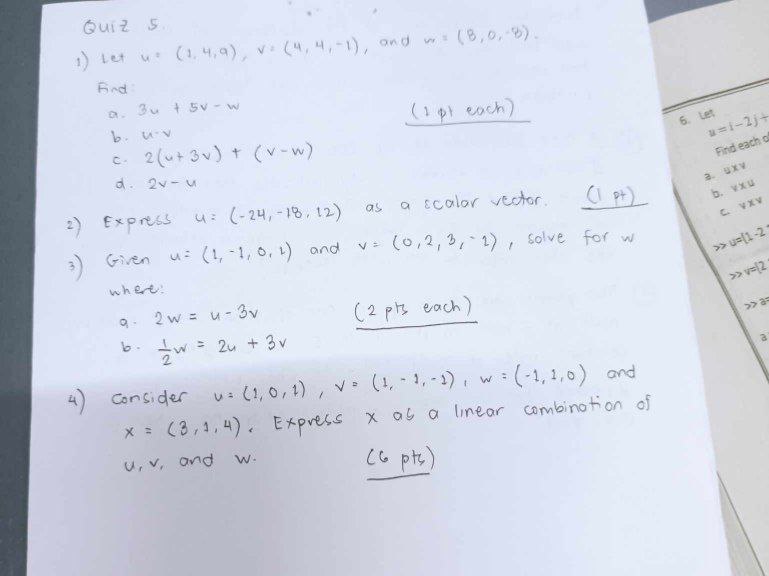 Quiz 5
1) Let u = (1, 4, 9), v = (4, 4, -1), and w = (8, 0, -8).
Find:
a. 3u + 5v - w
(1 pt each)
b. u-v
c. 2(u + 3v) + (v - w)
d. 2v - u
2) Express u = (-24, -18, 12) as a scalar vector. (1 pt)
3) Given u = (1, -1, 0, 1) and v = (0, 2, 3, -1), solve for w
where:
a. 2w = u - 3v
(2 pts each)
b. 1/2 w = 2u + 3v
4) Consider u = (1, 0, 1), v = (1, -1, -1), w = (-1, 1, 0) and
x = (3, 1, 4). Express x as a linear combination of
u, v, and w.
(6 pts)
6. Let
u=i-2j+
Find each of
a. uxv
b. vxu
c. vxv
>> u=[1-2
>> v=[2
>> a=
a